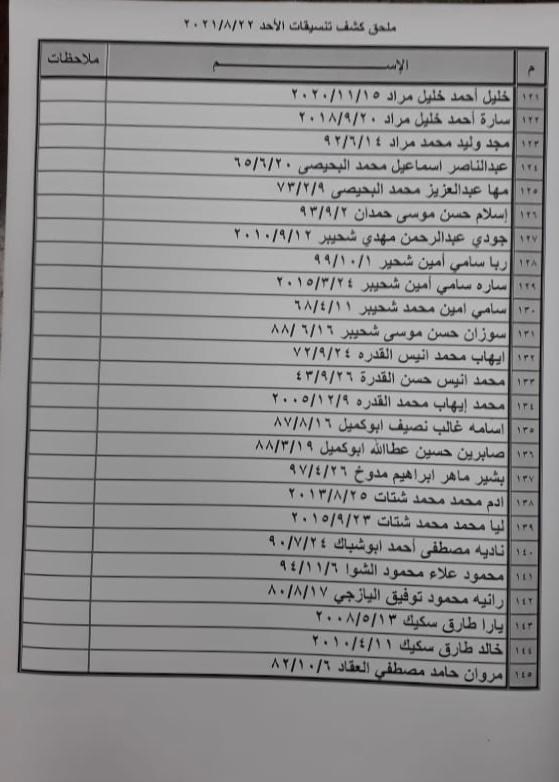 ملحق كشف تنسيقات الأحد ٢٠٢١/٨/٢٢
م الإســـــــم ملاحظات
١٢١ خليل أحمد خليل مراد ٢٠٢٠/١١/١٥
١٢٢ سارة أحمد خليل مراد ٢٠١٨/٩/٢٠
١٢٣ مجد وليد محمد مراد ٩٢/٦/١٤
١٢٤ عبدالناصر اسماعيل محمد البحيصى ٦٥/٦/٢٠
١٢٥ مها عبدالعزيز محمد البحيصى ٧٣/٢/٩
١٢٦ إسلام حسن موسى حمدان ٩٣/٩/٢
١٢٧ جودي عبدالرحمن مهدي شحيبر ٢٠١٠/٩/١٢
١٢٨ ربا سامي أمين شحير ٩٩/١٠/١
١٢٩ ساره سامي أمين شحيبر ٢٠١٥/٣/٢٤
١٣٠ سامي امين محمد شحيبر ٦٨/٤/١١
١٣١ سوزان حسن موسى شحيبر ٨٨/٦/١٦
١٣٢ ايهاب محمد انيس القدره ٧٢/٩/٢٤
١٣٣ محمد انيس حسن القدرة ٤٣/٩/٢٦
١٣٤ محمد إيهاب محمد القدره ٢٠٠٥/١٢/٩
١٣٥ اسامه غالب نصيف ابوكميل ٨٧/٨/١٦
١٣٦ صابرين حسين عطاالله ابوكميل ٨٨/٣/١٩
١٣٧ بشير ماهر ابراهيم مدوخ ٩٧/٤/٢٦
١٣٨ ادم محمد محمد شتات ٢٠١٣/٨/٢٥
١٣٩ ليا محمد محمد شتات ٢٠١٥/٩/٢٣
١٤٠ ناديه مصطفى أحمد ابوشباك ٩٠/٧/٢٤
١٤١ محمود علاء محمود الشوا ٩٤/١١/٦
١٤٢ رانيه محمود توفيق اليازجي ٨٠/٨/١٧
١٤٣ يارا طارق سكيك ٢٠٠٨/٥/١٣
١٤٤ خالد طارق سكيك ٢٠١٠/٤/١١
١٤٥ مروان حامد مصطفي العقاد ٨٢/١٠/٦